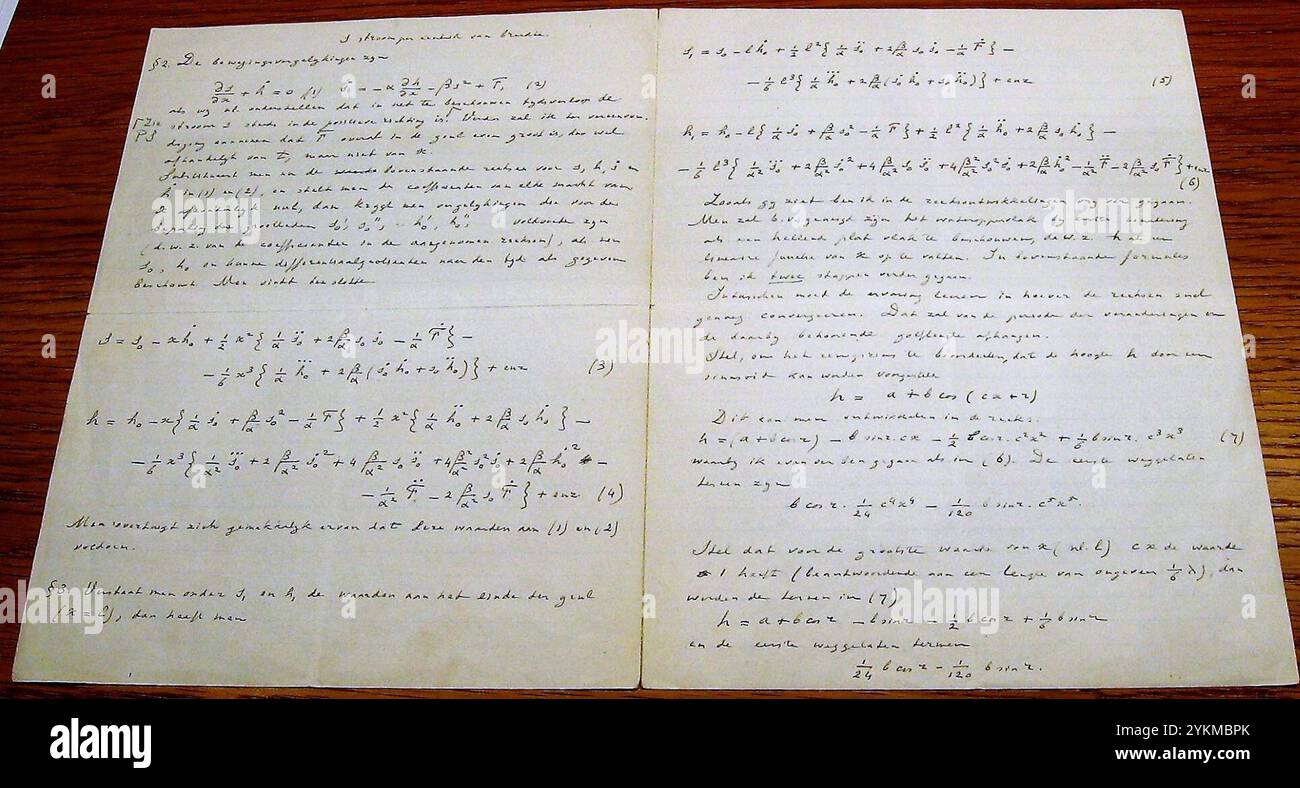 s stroom per eenheid van breedte.
§2. De bewegingsvergelykingen zyn
∂s/∂x + ḣ = 0 (1) ṡ = -α ∂h/∂x - βs² + F, (2)
als wy onderstellen dat in het te beschouwen tydsverloop de
stroom s steeds in de positieve richting is. Verder zal ik ter vereenvou-
diging aannemen dat F overal in de geul even groot is, dus wel
afhankelyk van t, maar niet van x.
Substitueert men nu de bovenstaande reeksen voor s, h, ṡ en
ḣ in (1) en (2), en stelt men de coefficienten van elke macht van
x afhankelyk nul, dan krygt men vergelykingen die voor de
bepaling der grootheden s₀', s₀'', .. h₀', h₀'', voldoende zyn
(d.w.z. van de coefficienten in de aangenomen reeksen), als men
s₀, h₀ en hunne differentiaalquotienten naar den tyd als gegeven
beschouwt. Men vindt ten slotte
s = s₀ - xḣ₀ + ½ x² {1/α s̈₀ + 2β/α s₀ ṡ₀ - 1/α Ḟ} -
- 1/6 x³ {1/α ḧ̇₀ + 2β/α (ṡ₀ ḣ₀ + s₀ ḧ₀)} + enz (3)
h = h₀ - x {1/α ṡ₀ + β/α s₀² - 1/α F} + ½ x² {1/α ḧ₀ + 2β/α s₀ ḣ₀} -
- 1/6 x³ {1/α² s̈̇₀ + 2β/α² ṡ₀² + 4β/α² s₀ s̈₀ + 4β²/α² s₀² ṡ₀ + 2β/α ḣ₀² -
- 1/α² F̈ - 2β/α² s₀ Ḟ} + enz (4)
Men overtuigt zich gemakkelyk ervan dat deze waarden aan (1) en (2)
voldoen.
§3. Verstaat men onder s₁ en h₁ de waarden aan het einde der geul
(x = l), dan heeft men
s₁ = s₀ - lḣ₀ + ½ l² {1/α s̈₀ + 2β/α s₀ ṡ₀ - 1/α Ḟ} -
- 1/6 l³ {1/α ḧ̇₀ + 2β/α (ṡ₀ ḣ₀ + s₀ ḧ₀)} + enz (5)
h₁ = h₀ - l {1/α ṡ₀ + β/α s₀² - 1/α F} + ½ l² {1/α ḧ₀ + 2β/α s₀ ḣ₀} -
- 1/6 l³ {1/α² s̈̇₀ + 2β/α² ṡ₀² + 4β/α² s₀ s̈₀ + 4β²/α² s₀² ṡ₀ + 2β/α ḣ₀² - 1/α² F̈ - 2β/α² s₀ Ḟ} + enz
(6)
Zooals gy ziet ben ik in de reeksontwikkelingen vry ver gegaan.
Men zal b.v. geneigd zyn het wateroppervlak by eerste benadering
als een hellend plat vlak te beschouwen, d.w.z. h als een
lineaire functie van x op te vatten. In bovenstaande formules
ben ik twee stappen verder gegaan.
Intusschen moet de ervaring leeren in hoever de reeksen snel
genoeg convergeeren. Dat zal van de periode der veranderingen en
de daarby behoorende golflengte afhangen.
Stel, om het eenigszins te beoordeelen, dat de hoogte h door een
sinusoide kan worden voorgesteld
h = a + b cos (cx + r)
Dit kan men ontwikkelen in de reeks.
h = (a + b cos r) - b sin r. cx - ½ b cos r. c²x² + 1/6 b sin r. c³x³ (7)
waarby ik even ver ben gegaan als in (6). De eerste weggelaten
termen zyn
b cos r. 1/24 c⁴x⁴ - 1/120 b sin r. c⁵x⁵.
Stel dat voor de grootste waarde van x (nl. l) cx de waarde
1 heeft (beantwoordende aan een lengte van ongeveer 1/6 λ), dan
worden de termen in (7)
h = a + b cos r - b sin r - ½ b cos r + 1/6 b sin r
en de eerste weggelaten termen
1/24 b cos r - 1/120 b sin r.
alamy
Image ID: 2YKMBPK
www.alamy.com